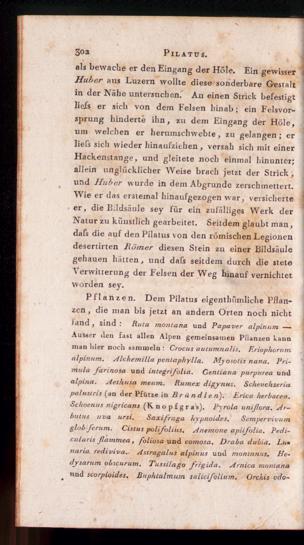 302 PILATUS.
als bewache er den Eingang der Höle. Ein gewisser
Huber aus Luzern wollte diese sonderbare Gestalt
in der Nähe untersuchen. An einen Strick befestigt
liefs er sich von dem Felsen hinab; ein Felsvor-
sprung hinderte ihn, zu dem Eingang der Höle,
um welchen er herumschwebte, zu gelangen; er
liefs sich wieder hinaufziehen, versah sich mit einer
Hackenstange, und gleitete noch einmal hinunter;
allein unglücklicher Weise brach jetzt der Strick,
und Huber wurde in dem Abgrunde zerschmettert.
Wie er das erstemal hinaufgezogen war, versicherte
er, die Bildsäule sey für ein zufälliges Werk der
Natur zu künstlich gearbeitet. Seitdem glaubt man,
dafs die auf den Pilatus von den römischen Legionen
desertirten Römer diesen Stein zu einer Bildsäule
gehauen hätten, und dafs seitdem durch die stete
Verwitterung der Felsen der Weg hinauf vernichtet
worden sey.
Pflanzen. Dem Pilatus eigenthümliche Pflan-
zen, die man bis jetzt an andern Orten noch nicht
fand, sind: Ruta montana und Papaver alpinum —
Ausser den fast allen Alpen gemeinsamen Pflanzen kann
man hier noch sammeln: Crocus autumnalis. Eriophorum
alpinum. Alchemilla pentaphylla. Myosotis nana. Pri-
mula farinosa und integrifolia. Gentiana purpurea und
alpina. Aethusa meum. Rumex digynus. Scheuchzeria
palustris (an der Pfütze in Bründlen). Erica herbacea.
Schoenus nigricans (Knopfgras). Pyrola uniflora. Ar-
butus uva ursi. Saxifraga hypnoides. Sempervivum
globiferum. Cistus polifolius. Anemone apiifolia. Pedi-
cularis flammea, foliosa und comosa. Draba dubia. Lu-
naria rediviva. Astragalus alpinus und montanus. He-
dysarum obscurum. Tussilago frigida. Arnica montana
und scorpioides. Buphtalmum salicifolium. Orchis odo-